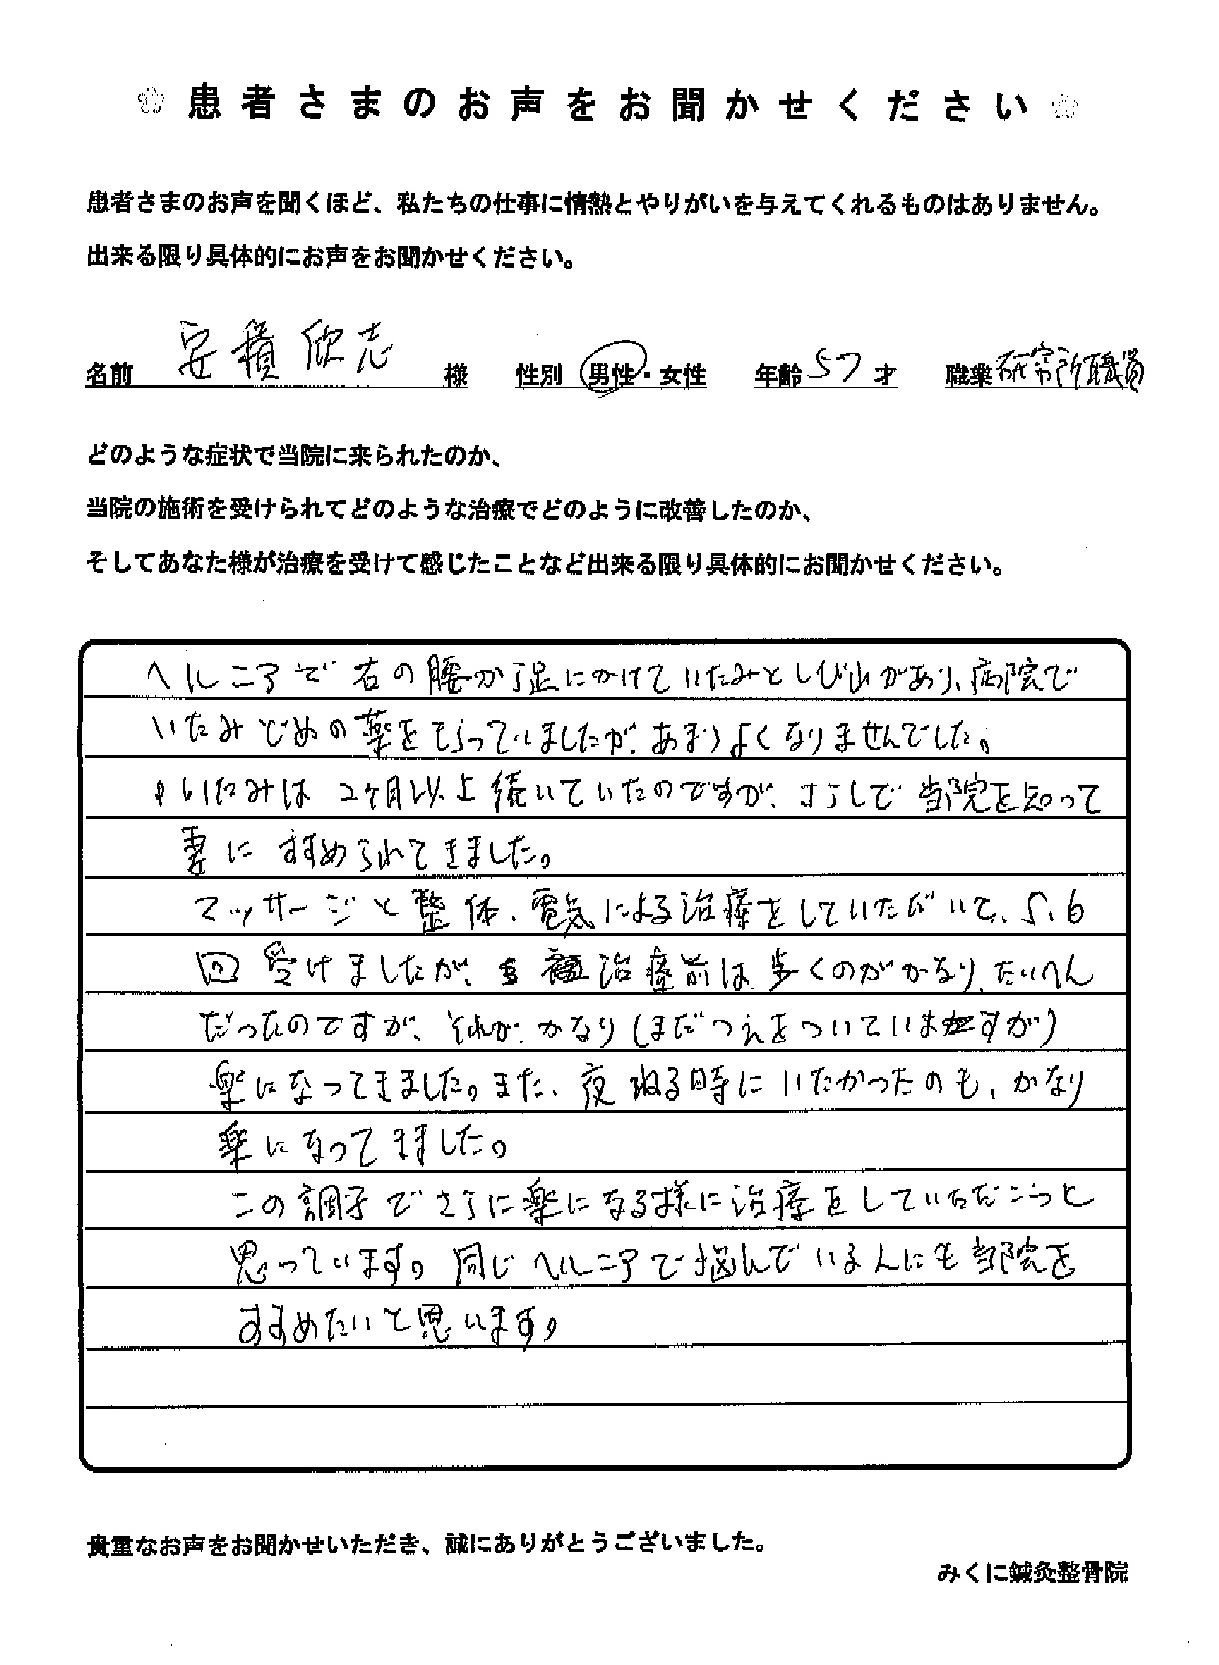 患者さまのお声をお聞かせください
患者さまのお声を聞くほど、私たちの仕事に情熱とやりがいを与えてくれるものはありません。
出来る限り具体的にお声をお聞かせください。
名前 安積欣志 様 性別 男性・女性 年齢 57 才 職業 研究所職員
どのような症状で当院に来られたのか、
当院の施術を受けられてどのような治療でどのように改善したのか、
そしてあなた様が治療を受けて感じたことなど出来る限り具体的にお聞かせください。
ヘルニアで右の腰から足にかけていたみとしびれがあり、病院で
いたみどめの薬をもらっていましたが、あまりよくなりませんでした。
いたみは2ヶ月以上続いていたのですが、ちらしで当院を知って
妻にすすめられてきました。
マッサージと整体、電気による治療をしていただいて、5、6
回受けましたが、治療前は歩くのがかなりたいへん
だったのですが、それが、かなり(まだつえをついていますが)
楽になってきました。また、夜ねる時にいたかったのも、かなり
楽になってきました。
この調子でさらに楽になる様に治療をしていただこうと
思っています。同じヘルニアで悩んでいる人にも当院を
すすめたいと思います。
貴重なお声をお聞かせいただき、誠にありがとうございました。
みくに鍼灸整骨院